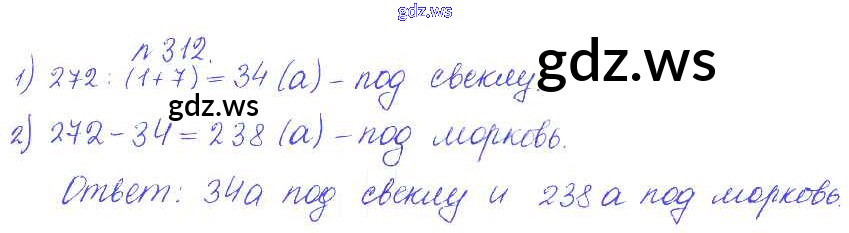 gdz.ws
n 312.
1) 272 : (1+7) = 34 (а) - под свеклу.
gdz.ws
gdz.ws
2) 272 - 34 = 238 (а) - под морковь.
Ответ: 34а под свеклу и 238 а под морковь.
gdz.ws